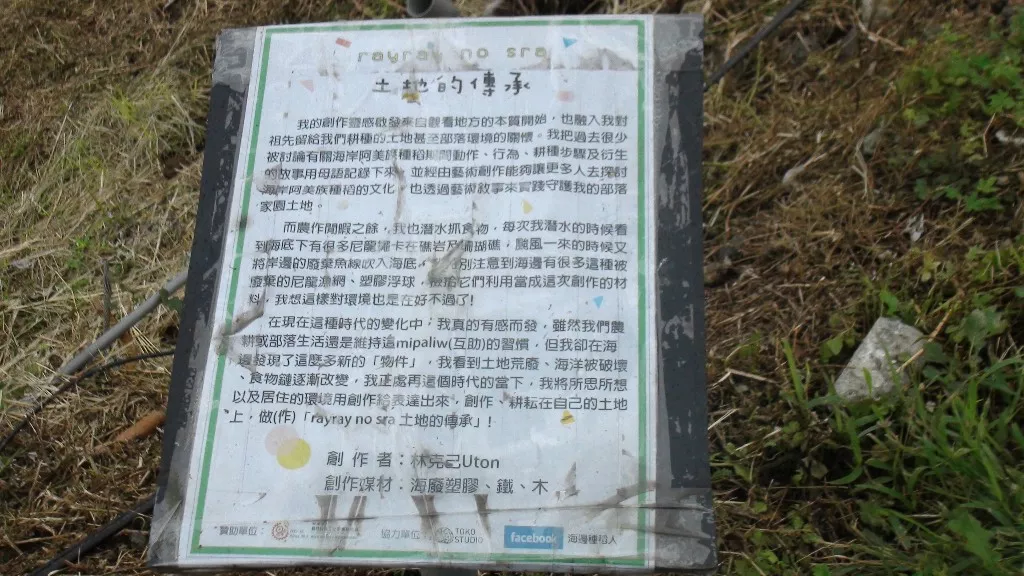 rayray no sra
土地的傳承
我的創作靈感啟發來自觀看地方的本質開始，也融入我對
祖先留給我們耕種的土地甚至部落環境的關懷。我把過去很少
被討論有關海岸阿美族種稻期間動作、行為、耕種步驟及衍生
的故事用母語記錄下來，並經由藝術創作能夠讓更多人去探討
海岸阿美族種稻的文化，也透過藝術敘事來實踐守護我的部落
家園土地。
而農作閒暇之餘，我也潛水抓食物，每次我潛水的時候看
到海底下有很多尼龍繩卡在礁岩及珊瑚礁，颱風一來的時候又
將岸邊的廢棄魚線吹入海底，特別注意到海邊有很多這種被
廢棄的尼龍漁網、塑膠浮球，它們利用當成這次創作的材
料，我想這樣對環境也是在好不過了！
在現在這種時代的變化中，我真的有感而發，雖然我們農
耕或部落生活還是維持這mipaliw(互助)的習慣，但我卻在海
邊發現了這麼多新的「物件」，我看到土地荒廢、海洋被破壞
、食物鏈逐漸改變，我正處再這個時代的當下，我將所思所想
以及居住的環境用創作給表達出來，創作、耕耘在自己的土地
上，做(作)「rayray no sra 土地的傳承」！
創 作 者：林克己Uton
創作媒材：海廢塑膠、鐵、木
贊助單位：
協力單位
TOKO STUDIO
facebook 海邊種稻人